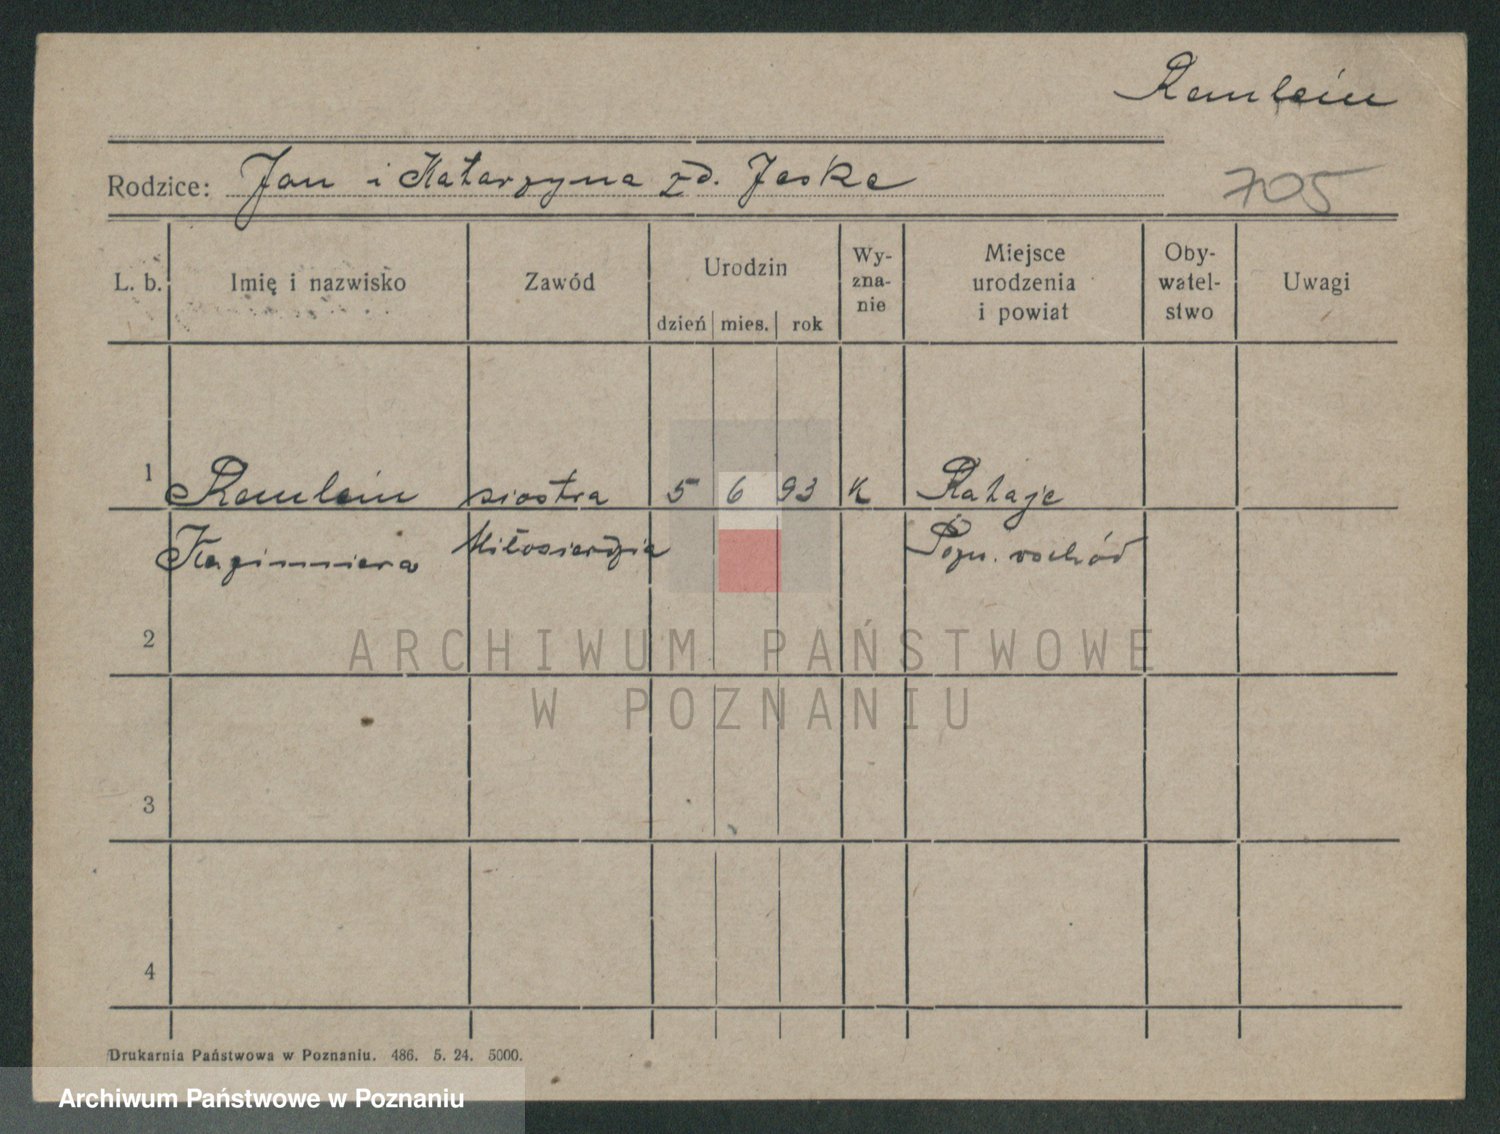 Remlein
Rodzice: Jan i Katarzyna zd. Jeske
705
L. b. Imię i nazwisko Zawód Urodzin dzień mies. rok Wy-zna-nie Miejsce urodzenia i powiat Oby-watel-stwo Uwagi
1 Remlein siostra 5 6 93 K Rataje
Kazimiera Miłosierdzia Pozn. wschód
2
ARCHIWUM PAŃSTWOWE
W POZNANIU
3
4
Drukarnia Państwowa w Poznaniu. 486. 5. 24. 5000.
Archiwum Państwowe w Poznaniu